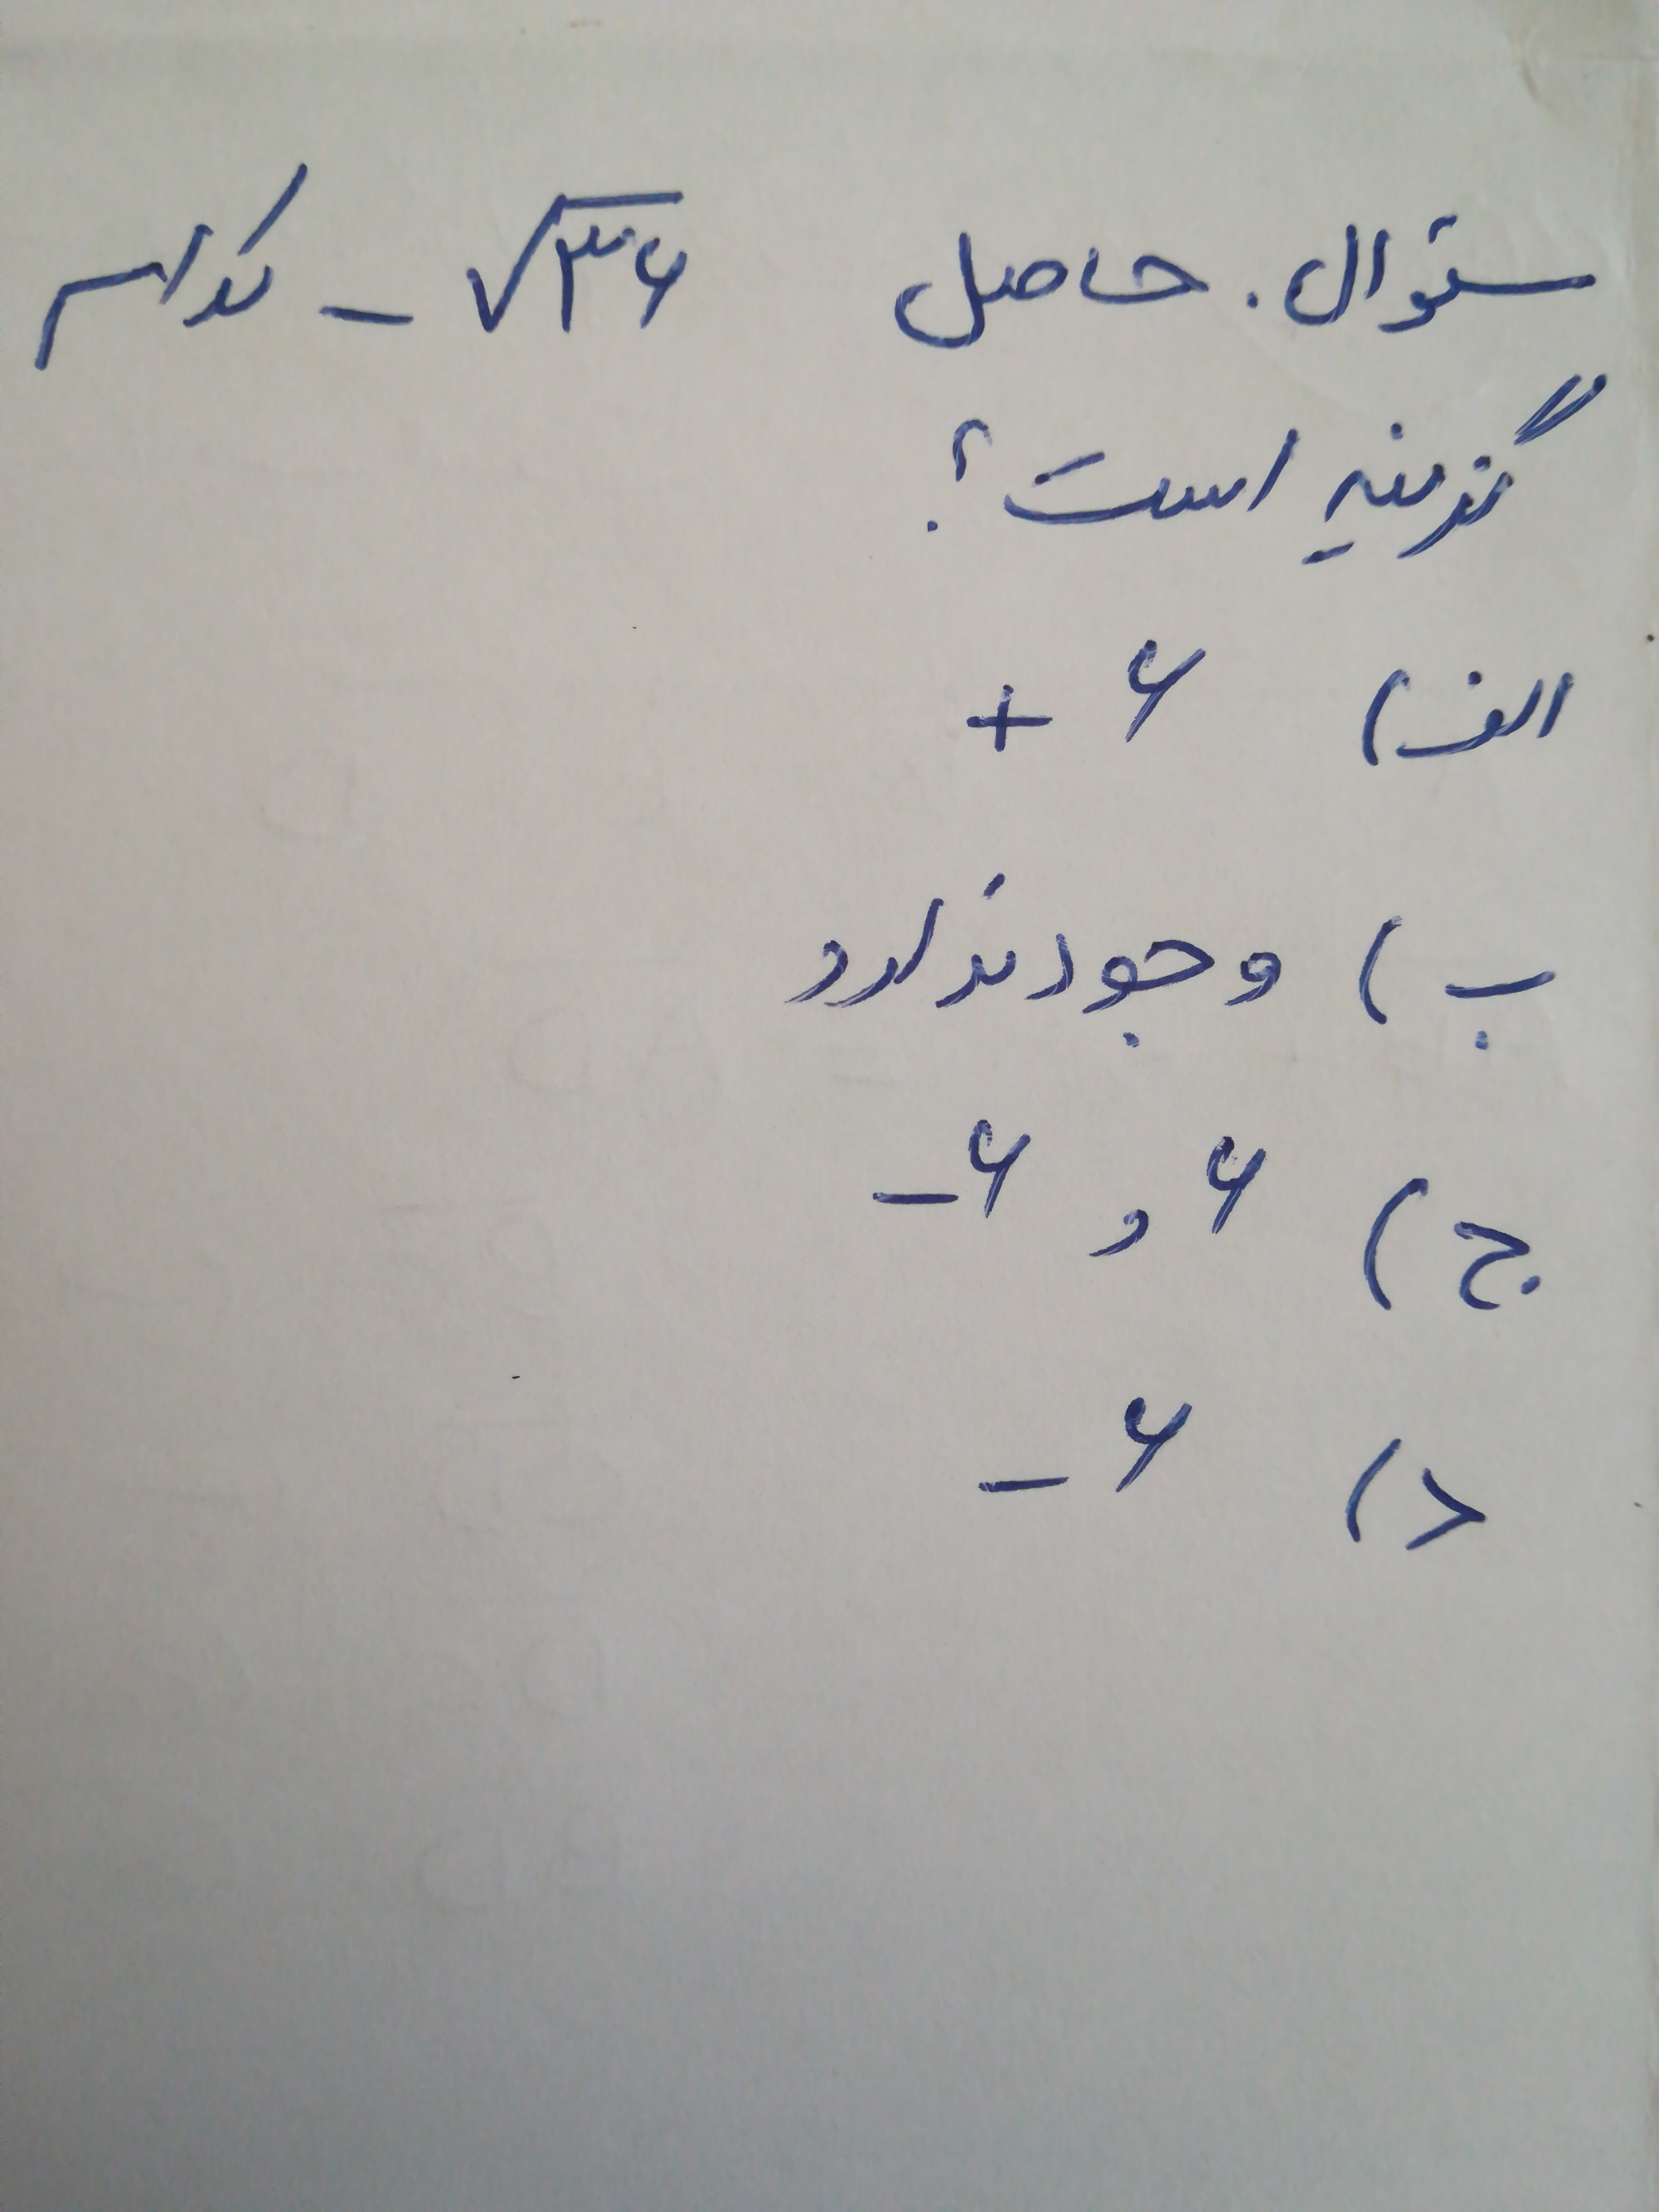 سئوال. حاصل -√۳۶ کدام
گزینه است؟
الف) +۶
ب) وجود ندارد
ج) ۶ و -۶
د) -۶